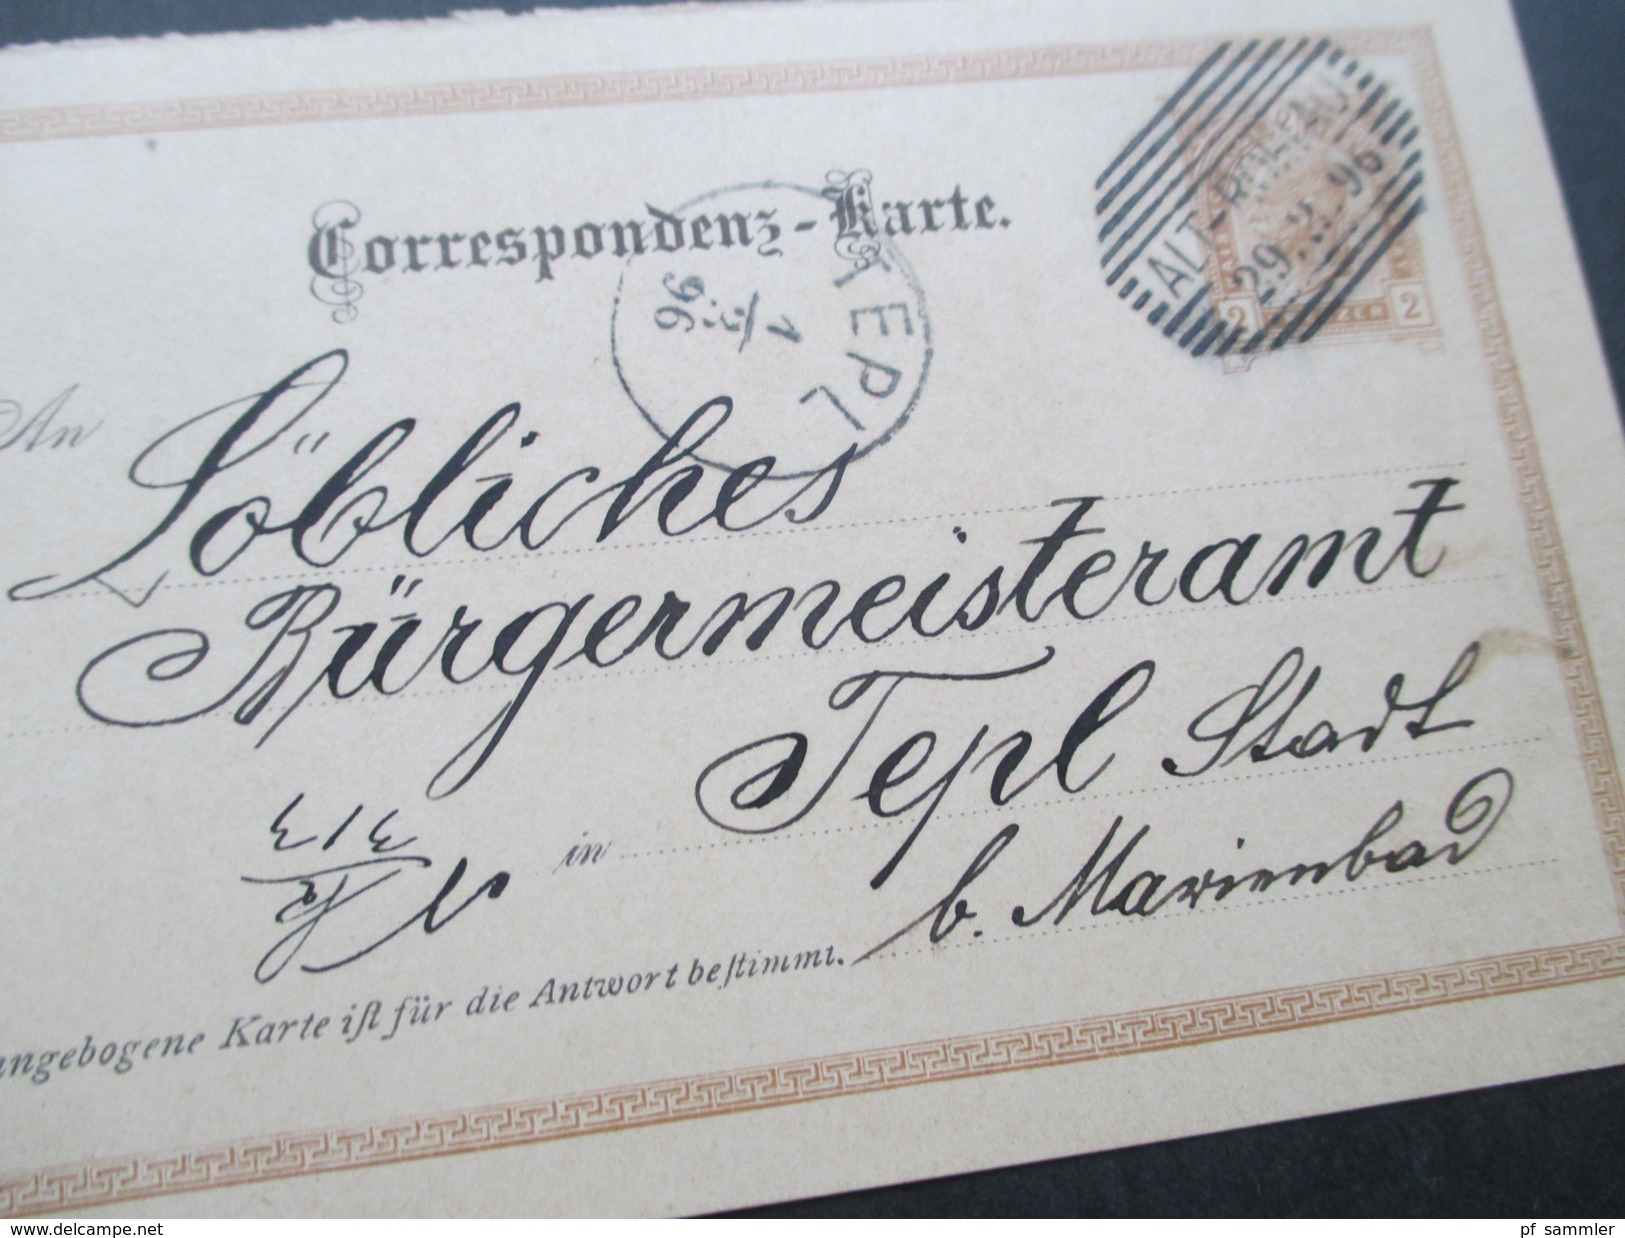 Correspondenz-Karte.
ALT-ROHLAU
29. 2. 96
2 2
TEPL
1/3
96
An
Löbliches
Bürgermeisteramt
in Tepl Stadt
b. Marienbad
angebogene Karte ist für die Antwort bestimmt.
www.delcampe.net
pf_sammler